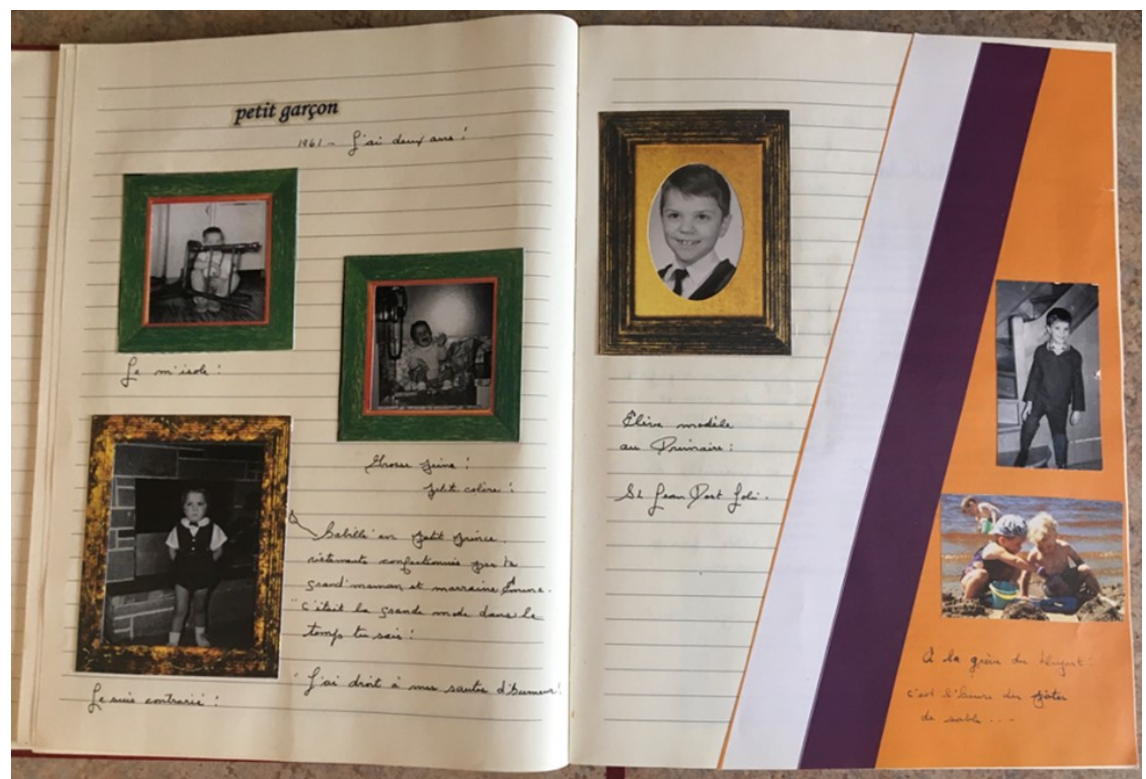 petit garçon
1961 - J'ai deux ans!
Je m'isole!
Grosse peine!
petite colère!
Habillé en petit prince,
vêtements confectionnés par la
grand'maman et marraine
"c'était la grande mode dans le
temps tu sais!
"J'ai droit à mes sautes d'humeur!
Je suis contrarié!
Élève modèle
au Primaire:
St Jean Port Joli.
À la grève du
c'est l'heure des pâtés
de sable...